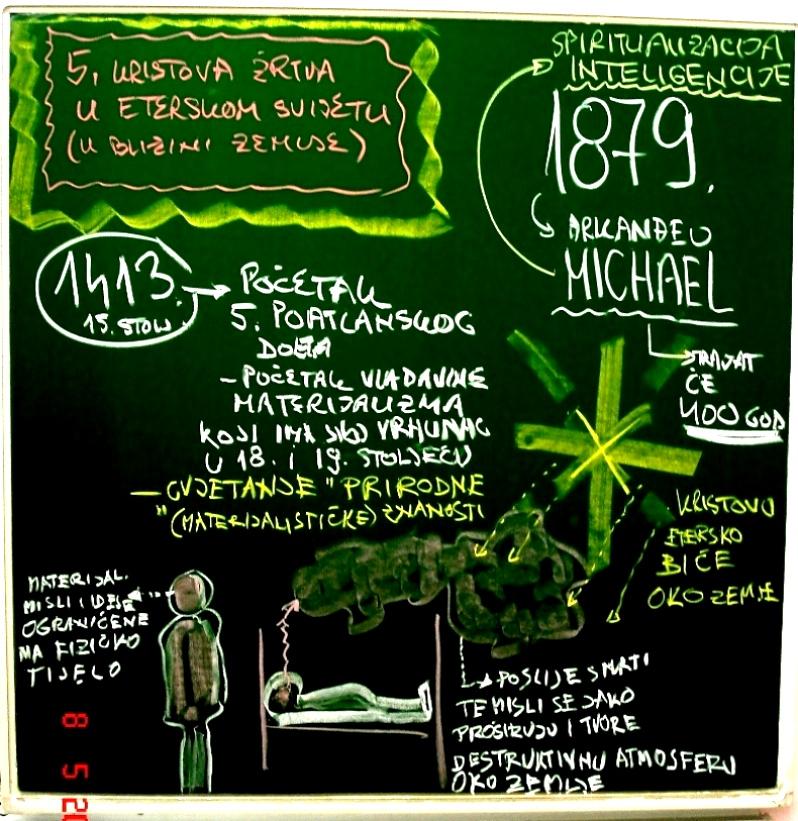 5. KRISTOVA ŽRTVA
U ETERSKOM SVIJETU
(U BLIZINI ZEMLJE)
SPIRITUALIZACIJA
INTELIGENCIJE
1879.
ARKANĐEO
MICHAEL
TRAJAT
ĆE
400 GOD
1413.
15. STOLJ.
POČETAK
5. POATLANSKOG
DOBA
- POČETAK VLADAVINE
MATERIJALIZMA
KOJI IMA SVOJ VRHUNAC
U 18. I 19. STOLJEĆU
- CVJETANJE "PRIRODNE
"(MATERIJALISTIČKE) ZNANOSTI
KRISTOVO
ETERSKO
BIĆE
OKO ZEMLJE
MATERIJAL.
MISLI I IDEJE
OGRANIČENE
NA FIZIČKO
TIJELO
POSLIJE SMRTI
TE MISLI SE JAKO
PROŠIRUJU I TVORE
DESTRUKTIVNU ATMOSFERU
OKO ZEMLJE
8 5 20